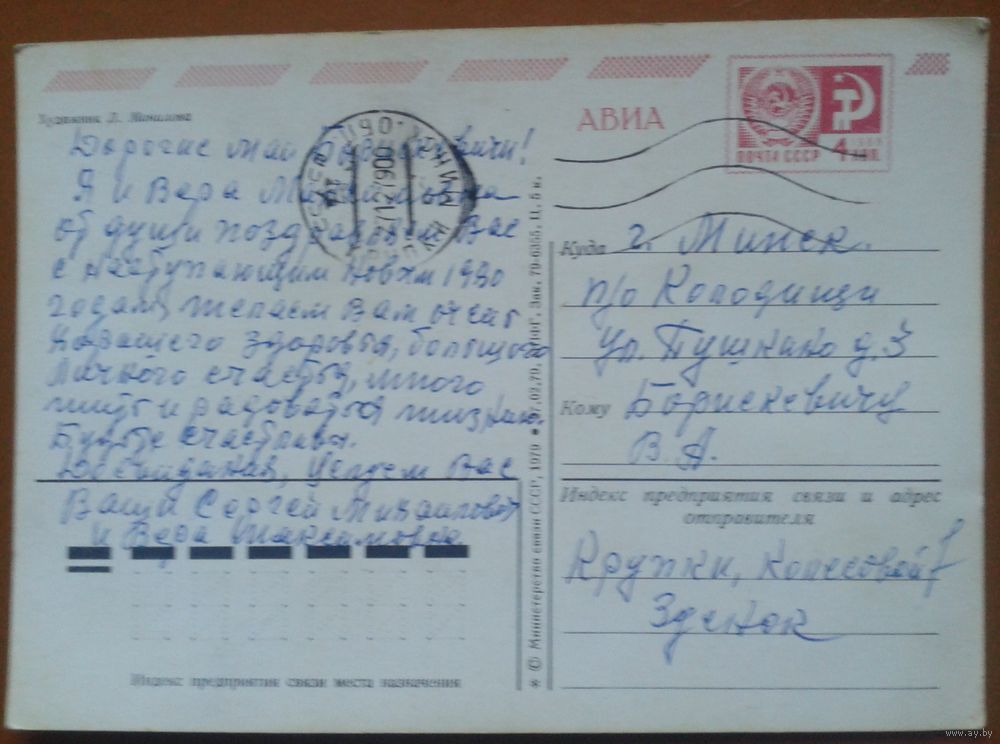 Художник Л. Манилова
Дорогие мои Борискевичи!
Я и Вера Максимовна
от души поздравляем Вас
с наступающим Новым 1980
годам, желаем Вам
хорошего здоровья, большого
личного счастья, много
жить и радоваться жизнью.
Будьте счастливы.
До свидания, целуем Вас
Ваши Сергей Михайлович
и Вера Максимовна
Индекс предприятия связи места назначения
АВИА
ПОЧТА СССР 4 коп.
Куда г. Минск.
п/о Колодищи
ул. Пушкино д. 3
Кому Борискевичу
В. А.
Индекс предприятия связи и адрес
отправителя
Крупки,
Зденок
* © Министерство связи СССР, 1979 Зак. 79-6355. Ц. 5 к.
www.ay.by